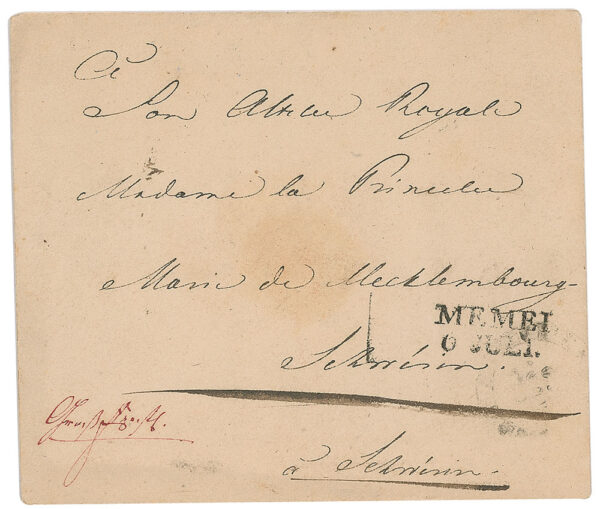 à
Son Altesse Royale
Madame la Princesse
Marie de Mecklembourg-
MEMEL
6 JULI.
Schwérin.
à Schwérin.